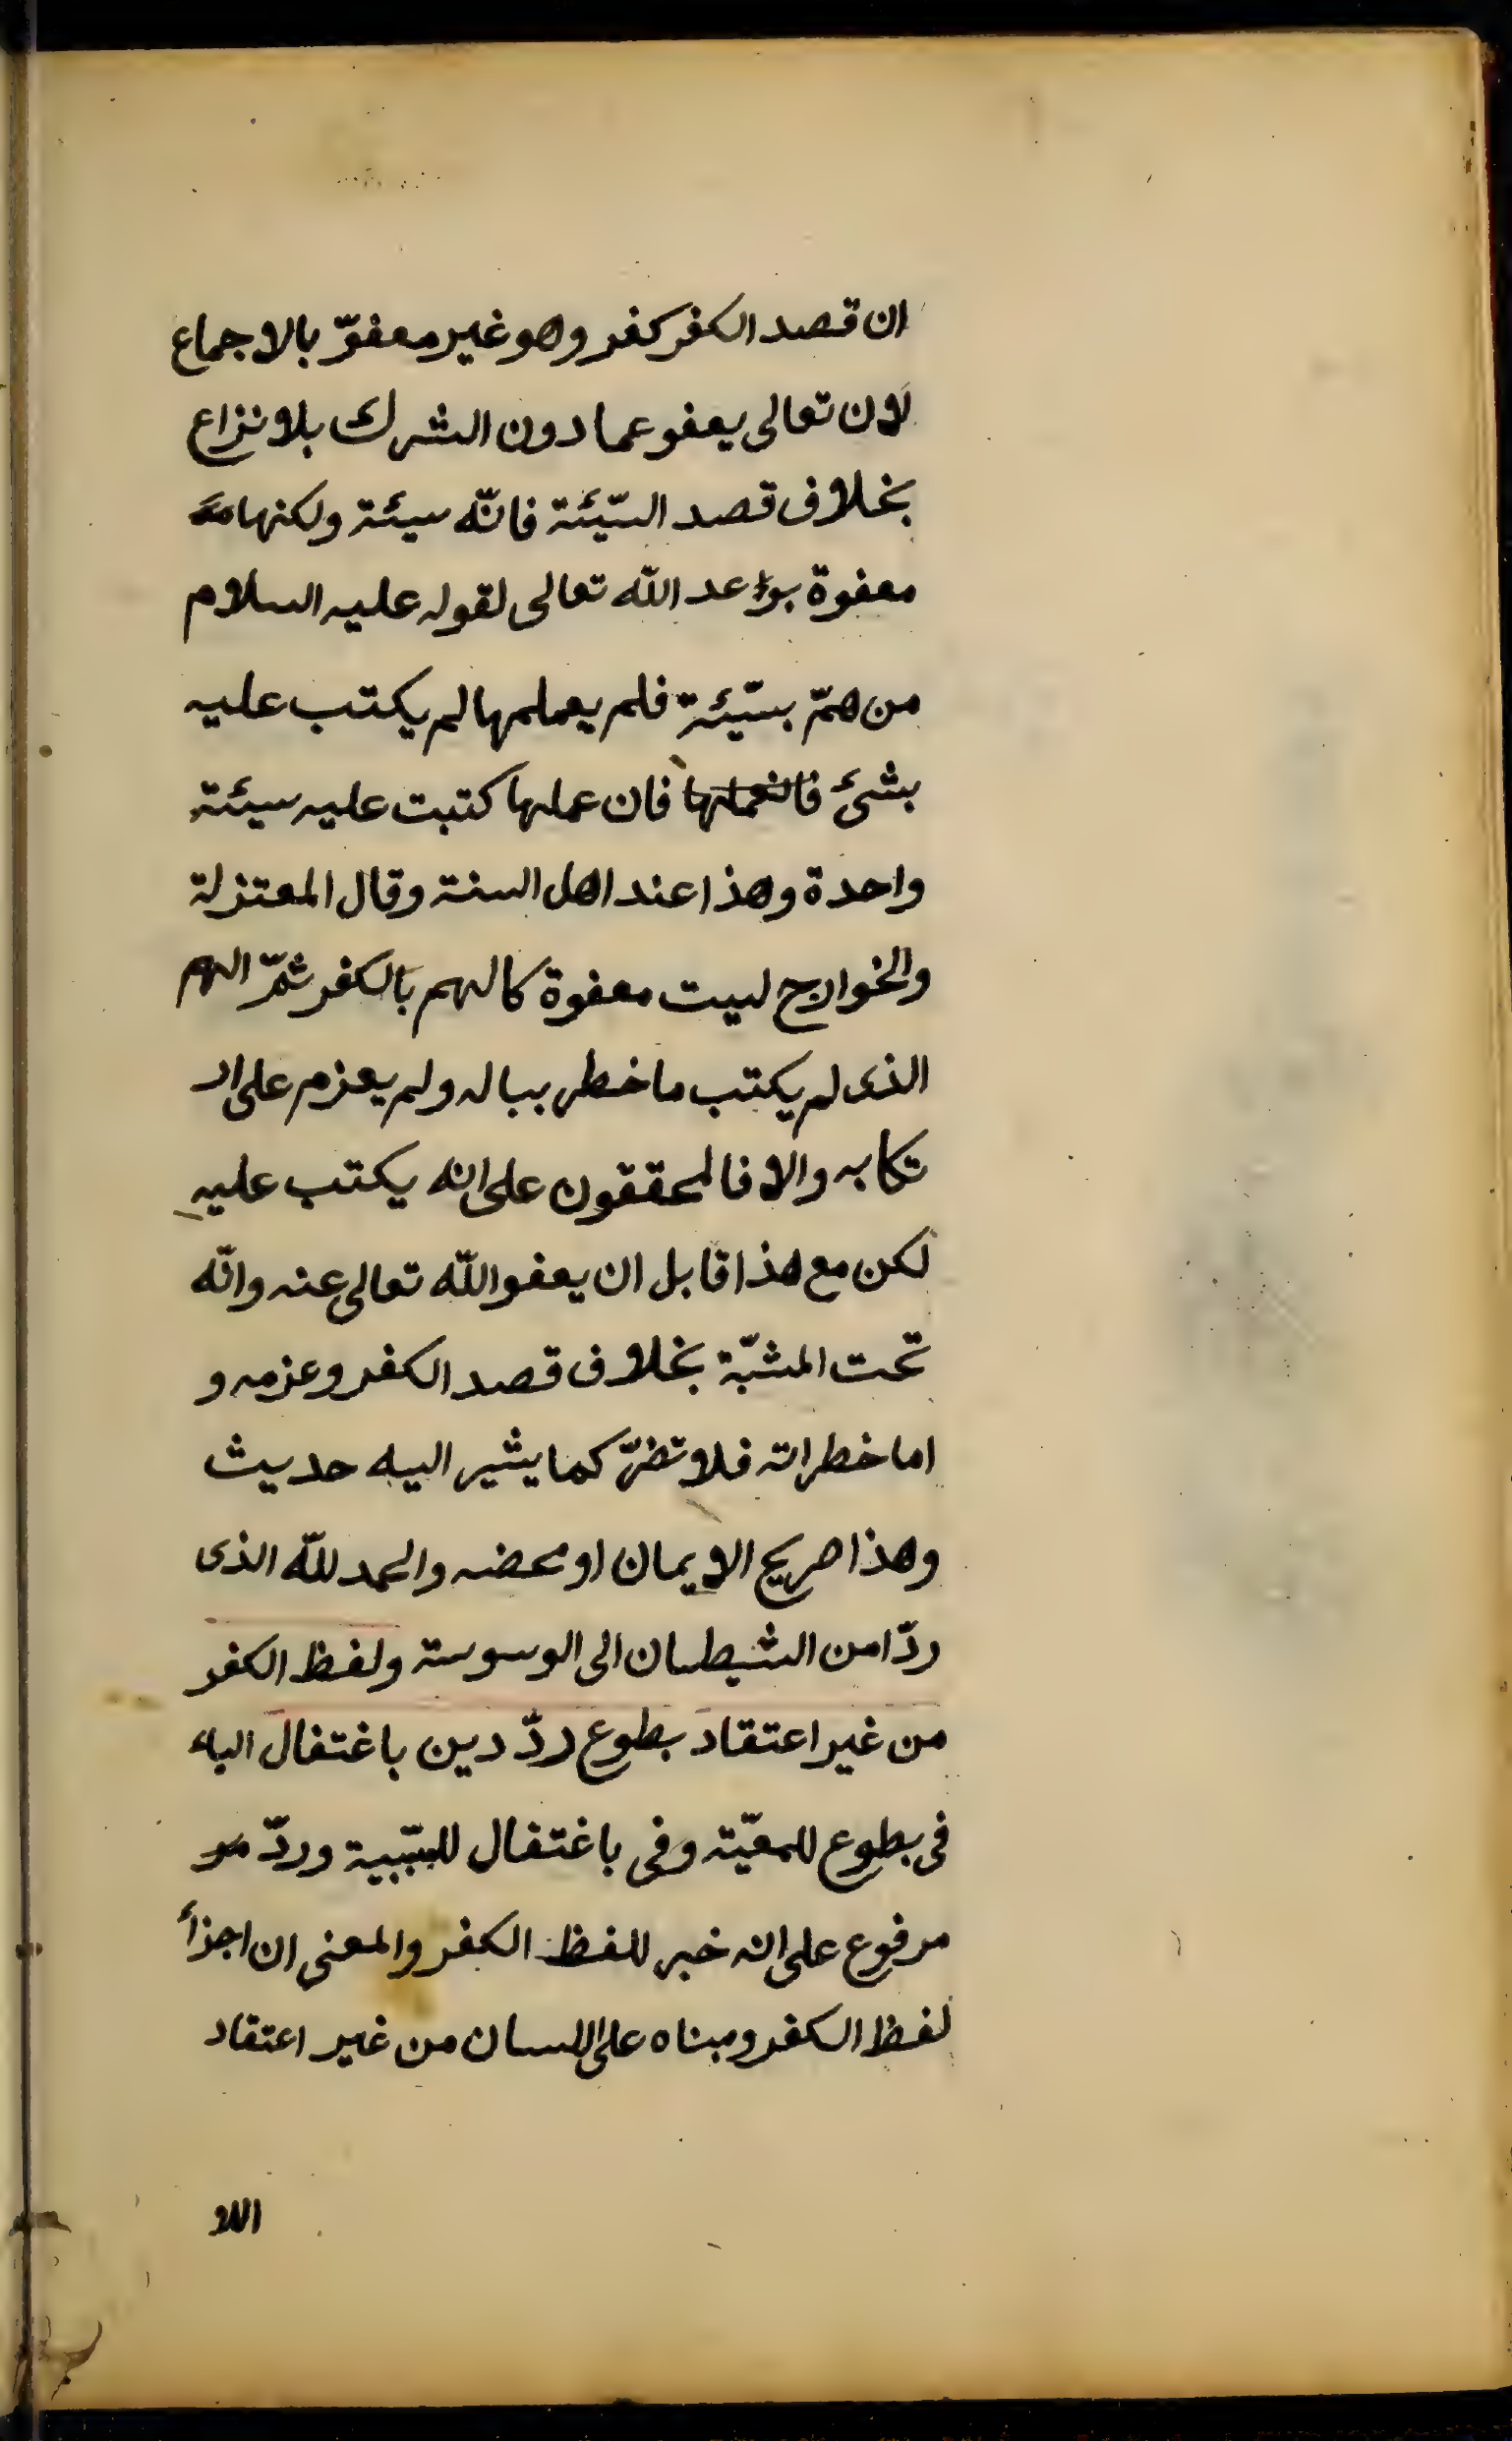 ان قصد الكفر كفر وهو غير معفوّ بالاجماع
لان تعالى يعفو عما دون الشرك بلا نزاع
بخلاف قصد السّيّئة فانّه سيئة ولكنها
معفوة بوعد الله تعالى لقوله عليه السلام
من همّ بسيّئة فلم يعملها لم يكتب عليه
بشئ فان عملها كتبت عليه سيئة
واحدة وهذا عند اهل السنة وقال المعتزلة
والخوارج ليست معفوة كالهم بالكفر ثمّ الهم
الذى لم يكتب ما خطر بباله ولم يعزم على ار
تكابه والا فالمحققون على انه يكتب عليه
لكن مع هذا قابل ان يعفو الله تعالى عنه وانّه
تحت المشيّة بخلاف قصد الكفر وعزمه و
اما خطراته فلا تضرّ كما يشير اليه حديث
وهذا صريح الايمان او محضه والحمد للّه الذى
ردّ امن الشيطان الى الوسوسة ولفظ الكفر
من غير اعتقاد بطوع ردّ دين باغتفال الباء
فى بطوع للمعيّة وفى باغتفال للسّببية وردّ
مرفوع على انه خبر للفظ الكفر والمعنى ان اجزأ
لفظ الكفر ومبناه على اللسان من غير اعتقاد